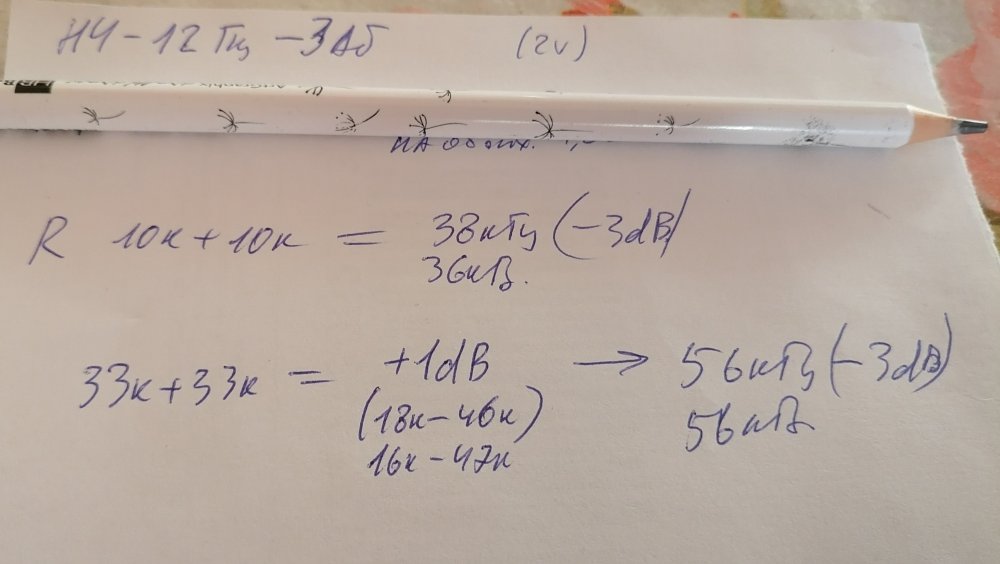 НЧ - 12 Гц - 3 дб (2v)
R 10к + 10к = 38кГц (-3dB)
36кГц.
33к + 33к = +1dB → 56кГц (-3dB)
(18к - 46к) 56кГц
16к - 47к